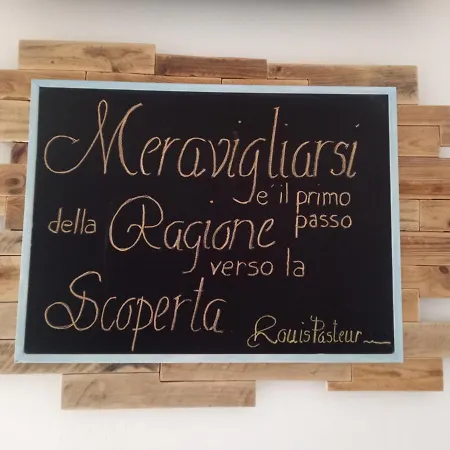 Meravigliarsi
é il primo
della Ragione passo
verso la
Scoperta
Louis Pasteur